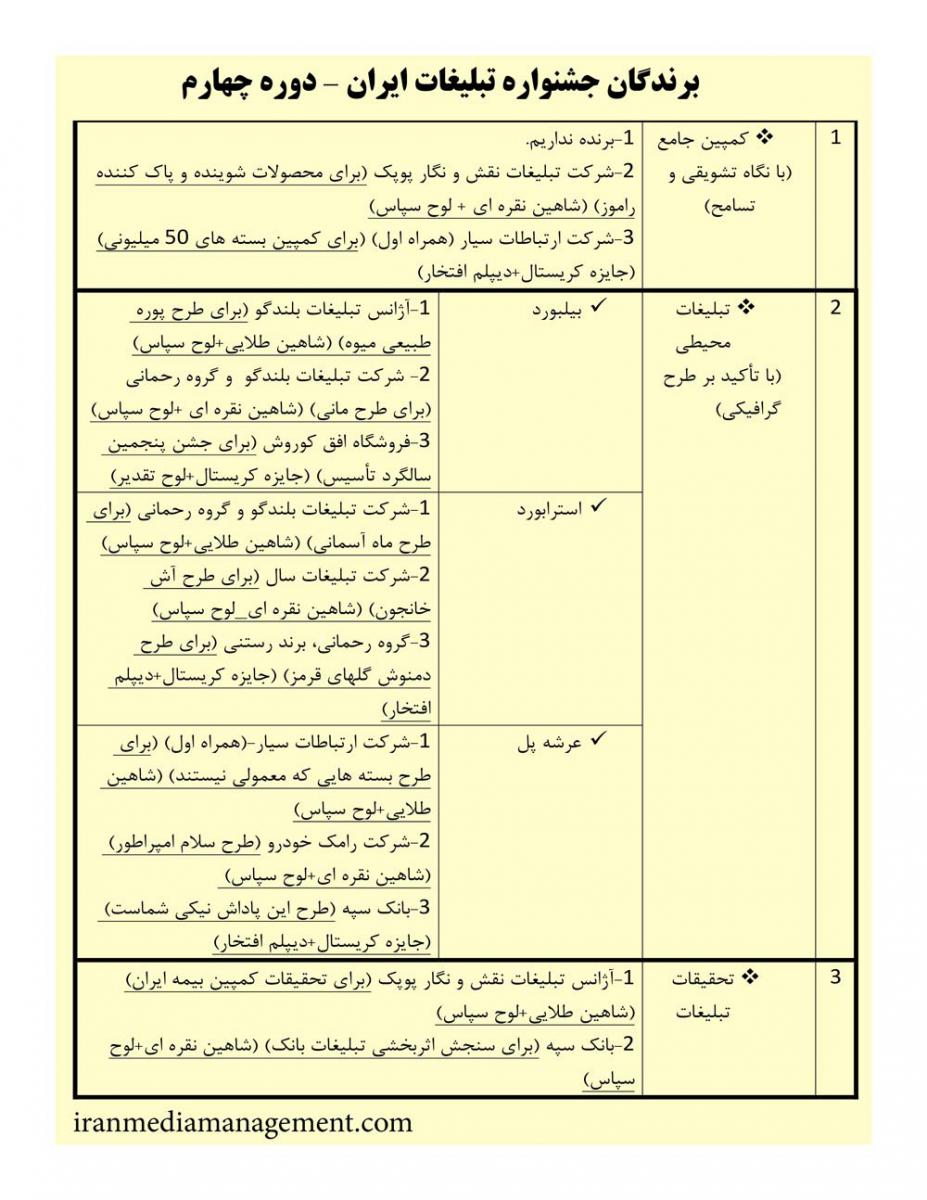 برندگان جشنواره تبلیغات ایران – دوره چهارم
1
❖ کمپین جامع
(با نگاه تشویقی و
تسامح)
1-برنده نداریم.
2-شرکت تبلیغات نقش و نگار پوپک (برای محصولات شوینده و پاک کننده
راموز) (شاهین نقره ای + لوح سپاس)
3-شرکت ارتباطات سیار (همراه اول) (برای کمپین بسته های 50 میلیونی)
(جایزه کریستال+دیپلم افتخار)
2
❖ تبلیغات
محیطی
(با تأکید بر طرح
گرافیکی)
✓ بیلبورد
1-آژانس تبلیغات بلندگو (برای طرح پوره
طبیعی میوه) (شاهین طلایی+لوح سپاس)
2- شرکت تبلیغات بلندگو و گروه رحمانی
(برای طرح مانی) (شاهین نقره ای +لوح سپاس)
3-فروشگاه افق کوروش (برای جشن پنجمین
سالگرد تأسیس) (جایزه کریستال+لوح تقدیر)
✓ استرابورد
1-شرکت تبلیغات بلندگو و گروه رحمانی (برای
طرح ماه آسمانی) (شاهین طلایی+لوح سپاس)
2-شرکت تبلیغات سال (برای طرح آش
خانجون) (شاهین نقره ای_لوح سپاس)
3-گروه رحمانی، برند رستنی (برای طرح
دمنوش گلهای قرمز) (جایزه کریستال+دیپلم
افتخار)
✓ عرشه پل
1-شرکت ارتباطات سیار-(همراه اول) (برای
طرح بسته هایی که معمولی نیستند) (شاهین
طلایی+لوح سپاس)
2-شرکت رامک خودرو (طرح سلام امپراطور)
(شاهین نقره ای+لوح سپاس)
3-بانک سپه (طرح این پاداش نیکی شماست)
(جایزه کریستال+دیپلم افتخار)
3
❖ تحقیقات
تبلیغات
1-آژانس تبلیغات نقش و نگار پوپک (برای تحقیقات کمپین بیمه ایران)
(شاهین طلایی+لوح سپاس)
2-بانک سپه (برای سنجش اثربخشی تبلیغات بانک) (شاهین نقره ای+لوح
سپاس)
iranmediamanagement.com